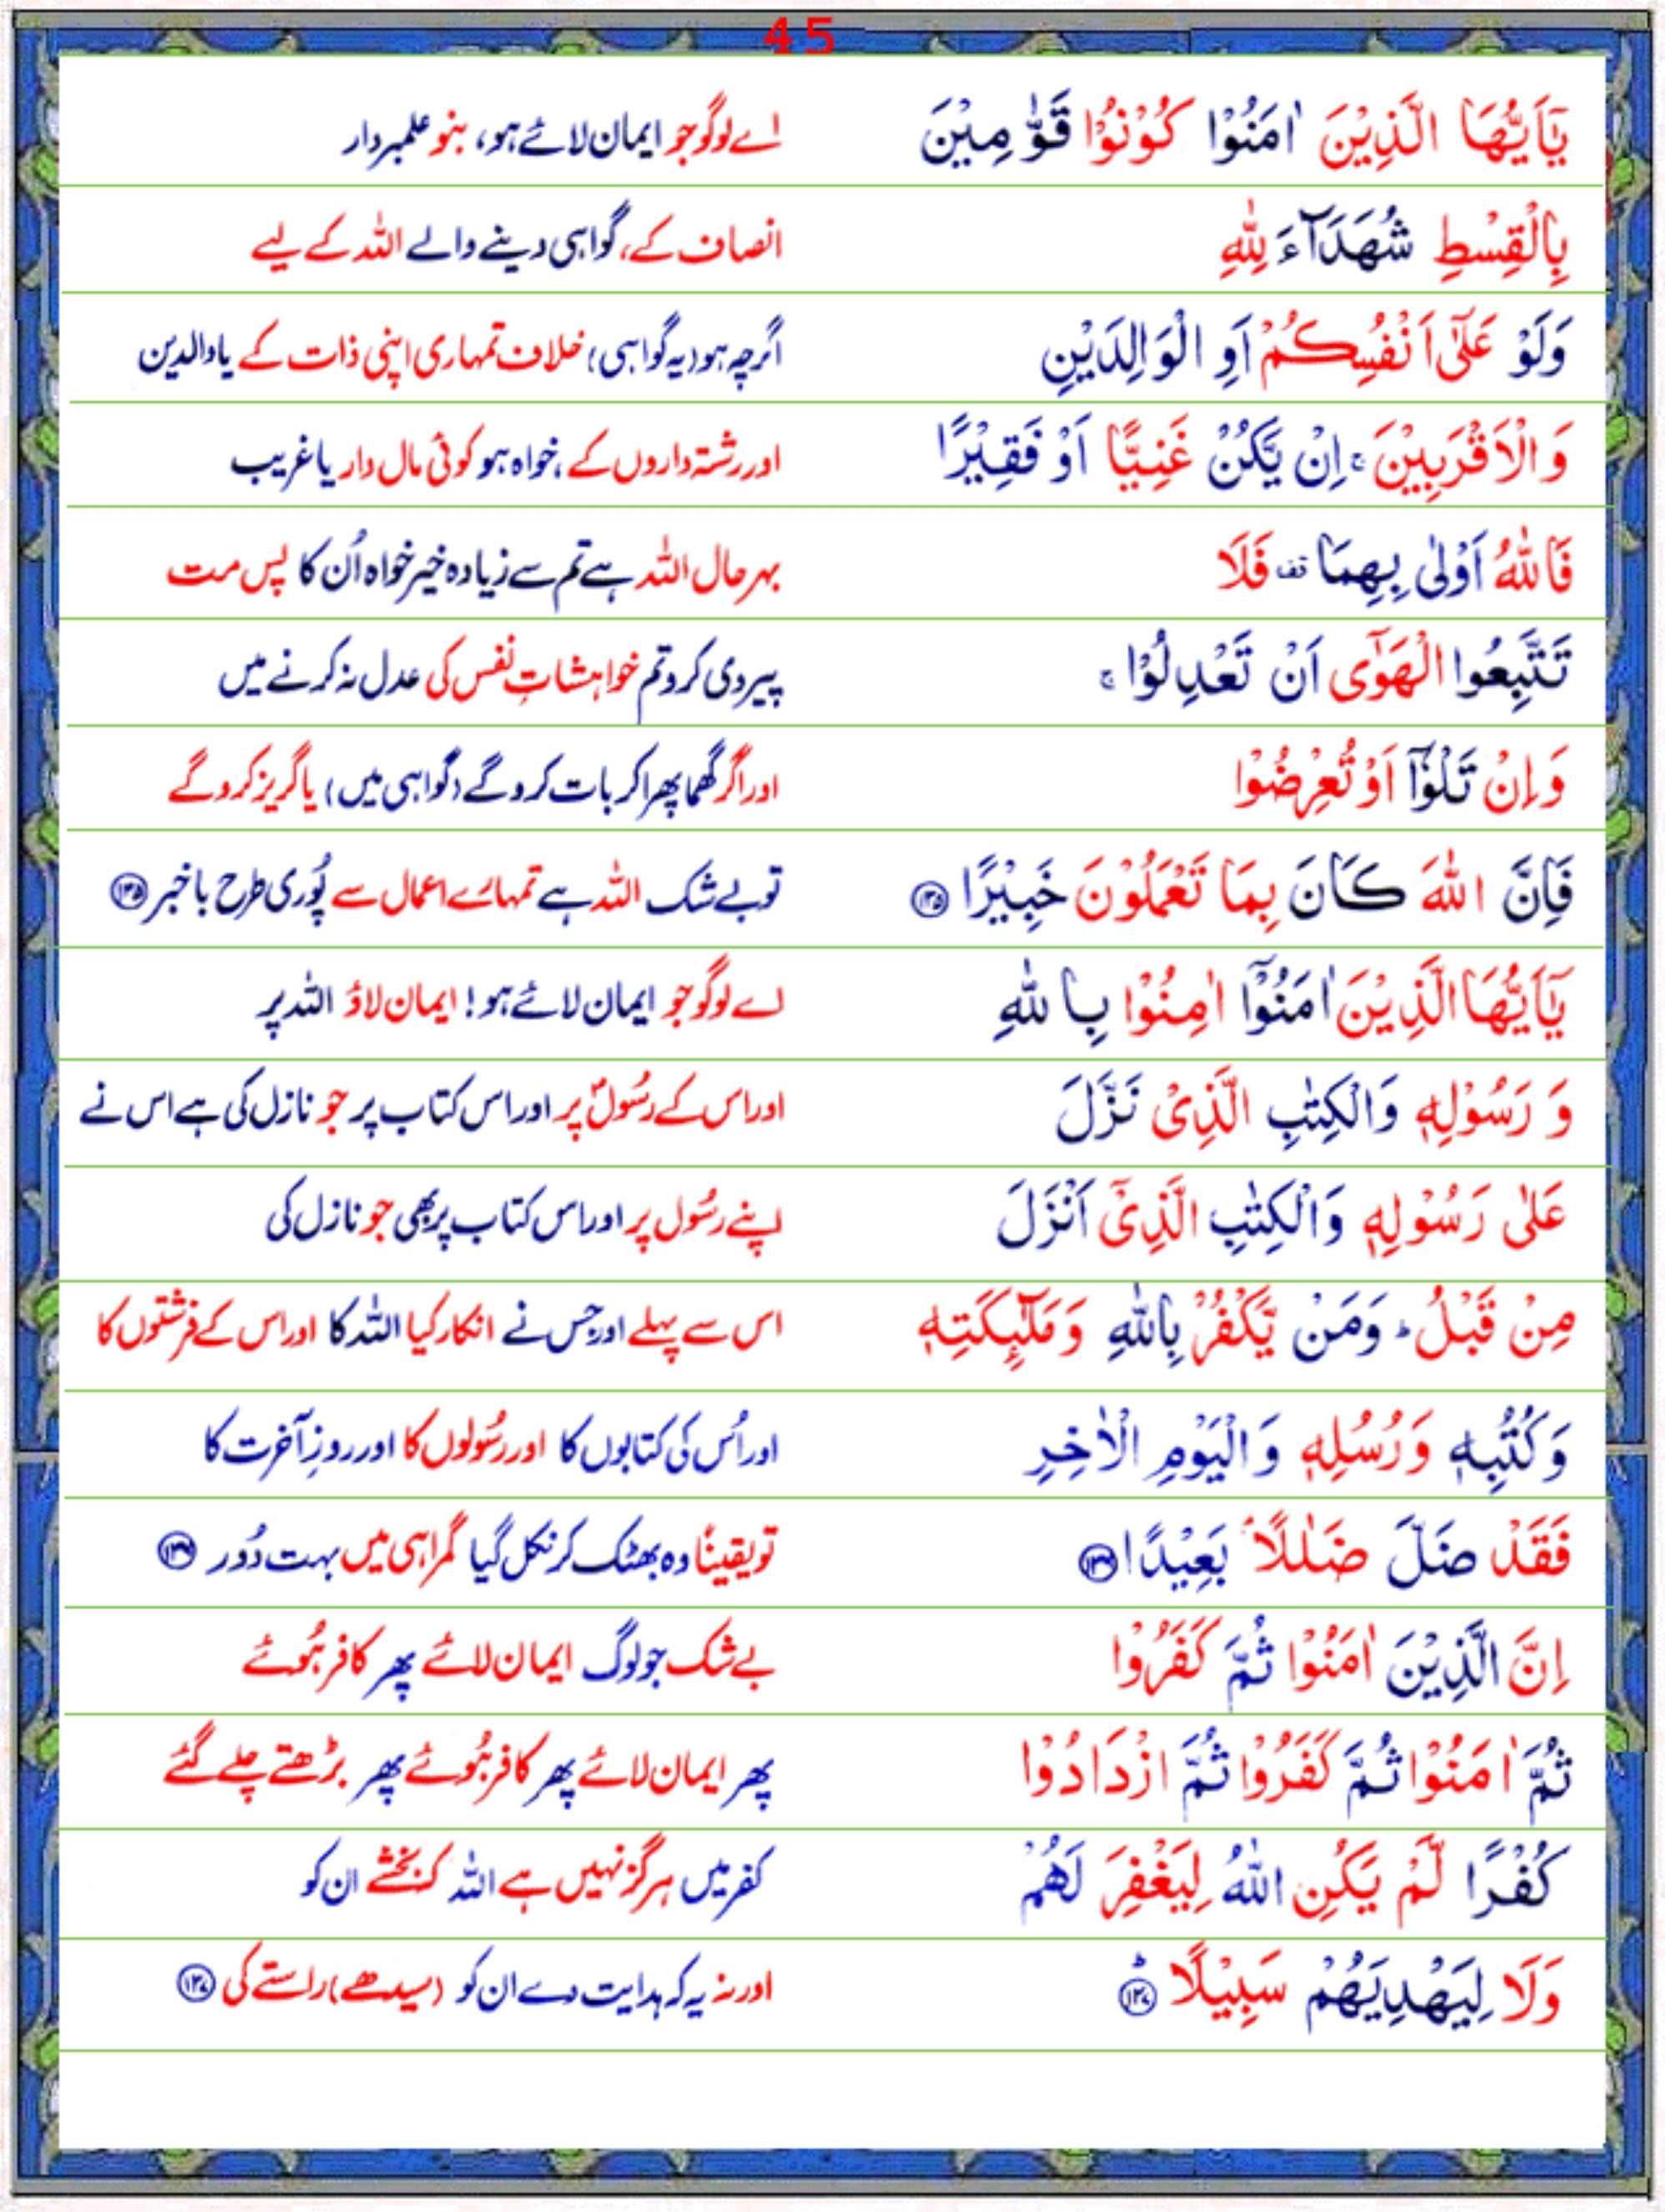 45
يٰۤاَيُّهَا الَّذِيْنَ اٰمَنُوْا كُوْنُوْا قَوّٰمِيْنَ اے لوگو جو ایمان لائے ہو، بنو علمبردار
بِالْقِسْطِ شُهَدَآءَ لِلّٰهِ انصاف کے، گواہی دینے والے اللہ کے لیے
وَلَوْ عَلٰۤى اَنْفُسِكُمْ اَوِ الْوَالِدَيْنِ اگرچہ ہو (یہ گواہی) خلاف تمہاری اپنی ذات کے یا والدین
وَالْاَقْرَبِيْنَ ۚ اِنْ يَّكُنْ غَنِيًّا اَوْ فَقِيْرًا اور رشتہ داروں کے، خواہ ہو کوئی مال دار یا غریب
فَاللّٰهُ اَوْلٰى بِهِمَا قف فَلَا بہرحال اللہ ہے تم سے زیادہ خیر خواہ اُن کا پس مت
تَتَّبِعُوا الْهَوٰۤى اَنْ تَعْدِلُوْا ۚ پیروی کرو تم خواہشاتِ نفس کی عدل نہ کرنے میں
وَاِنْ تَلْوٗۤا اَوْ تُعْرِضُوْا اور اگر گھما پھرا کر بات کرو گے (گواہی میں) یا گریز کرو گے
فَاِنَّ اللّٰهَ كَانَ بِمَا تَعْمَلُوْنَ خَبِيْرًا ﴿۱۳۵﴾ تو بے شک اللہ ہے تمہارے اعمال سے پُوری طرح باخبر ﴿۱۳۵﴾
يٰۤاَيُّهَا الَّذِيْنَ اٰمَنُوْۤا اٰمِنُوْا بِاللّٰهِ اے لوگو جو ایمان لائے ہو! ایمان لاؤ اللہ پر
وَ رَسُوْلِهٖ وَالْكِتٰبِ الَّذِىْ نَزَّلَ اور اس کے رسُولؐ پر اور اس کتاب پر جو نازل کی ہے اس نے
عَلٰى رَسُوْلِهٖ وَالْكِتٰبِ الَّذِىْۤ اَنْزَلَ اپنے رسُول پر اور اس کتاب پر بھی جو نازل کی
مِنْ قَبْلُ ؕ وَمَنْ يَّكْفُرْ بِاللّٰهِ وَمَلٰٓئِكَتِهٖ اس سے پہلے اور جس نے انکار کیا اللہ کا اور اس کے فرشتوں کا
وَكُتُبِهٖ وَرُسُلِهٖ وَالْيَوْمِ الْاٰخِرِ اور اُس کی کتابوں کا اور رسُولوں کا اور روزِ آخرت کا
فَقَدْ ضَلَّ ضَلٰلًاۢ بَعِيْدًا ﴿۱۳۶﴾ تو یقینًا وہ بھٹک کر نکل گیا گمراہی میں بہت دُور ﴿۱۳۶﴾
اِنَّ الَّذِيْنَ اٰمَنُوْا ثُمَّ كَفَرُوْا بے شک جو لوگ ایمان لائے پھر کافر ہُوئے
ثُمَّ اٰمَنُوْا ثُمَّ كَفَرُوْا ثُمَّ ازْدَادُوْا پھر ایمان لائے پھر کافر ہُوئے پھر بڑھتے چلے گئے
كُفْرًا لَّمْ يَكُنِ اللّٰهُ لِيَغْفِرَ لَهُمْ کفر میں ہرگز نہیں ہے اللہ کہ بخشے ان کو
وَلَا لِيَهْدِيَهُمْ سَبِيْلًا ﴿۱۳۷﴾ ؕ اور نہ یہ کہ ہدایت دے ان کو (سیدھے) راستے کی ﴿۱۳۷﴾